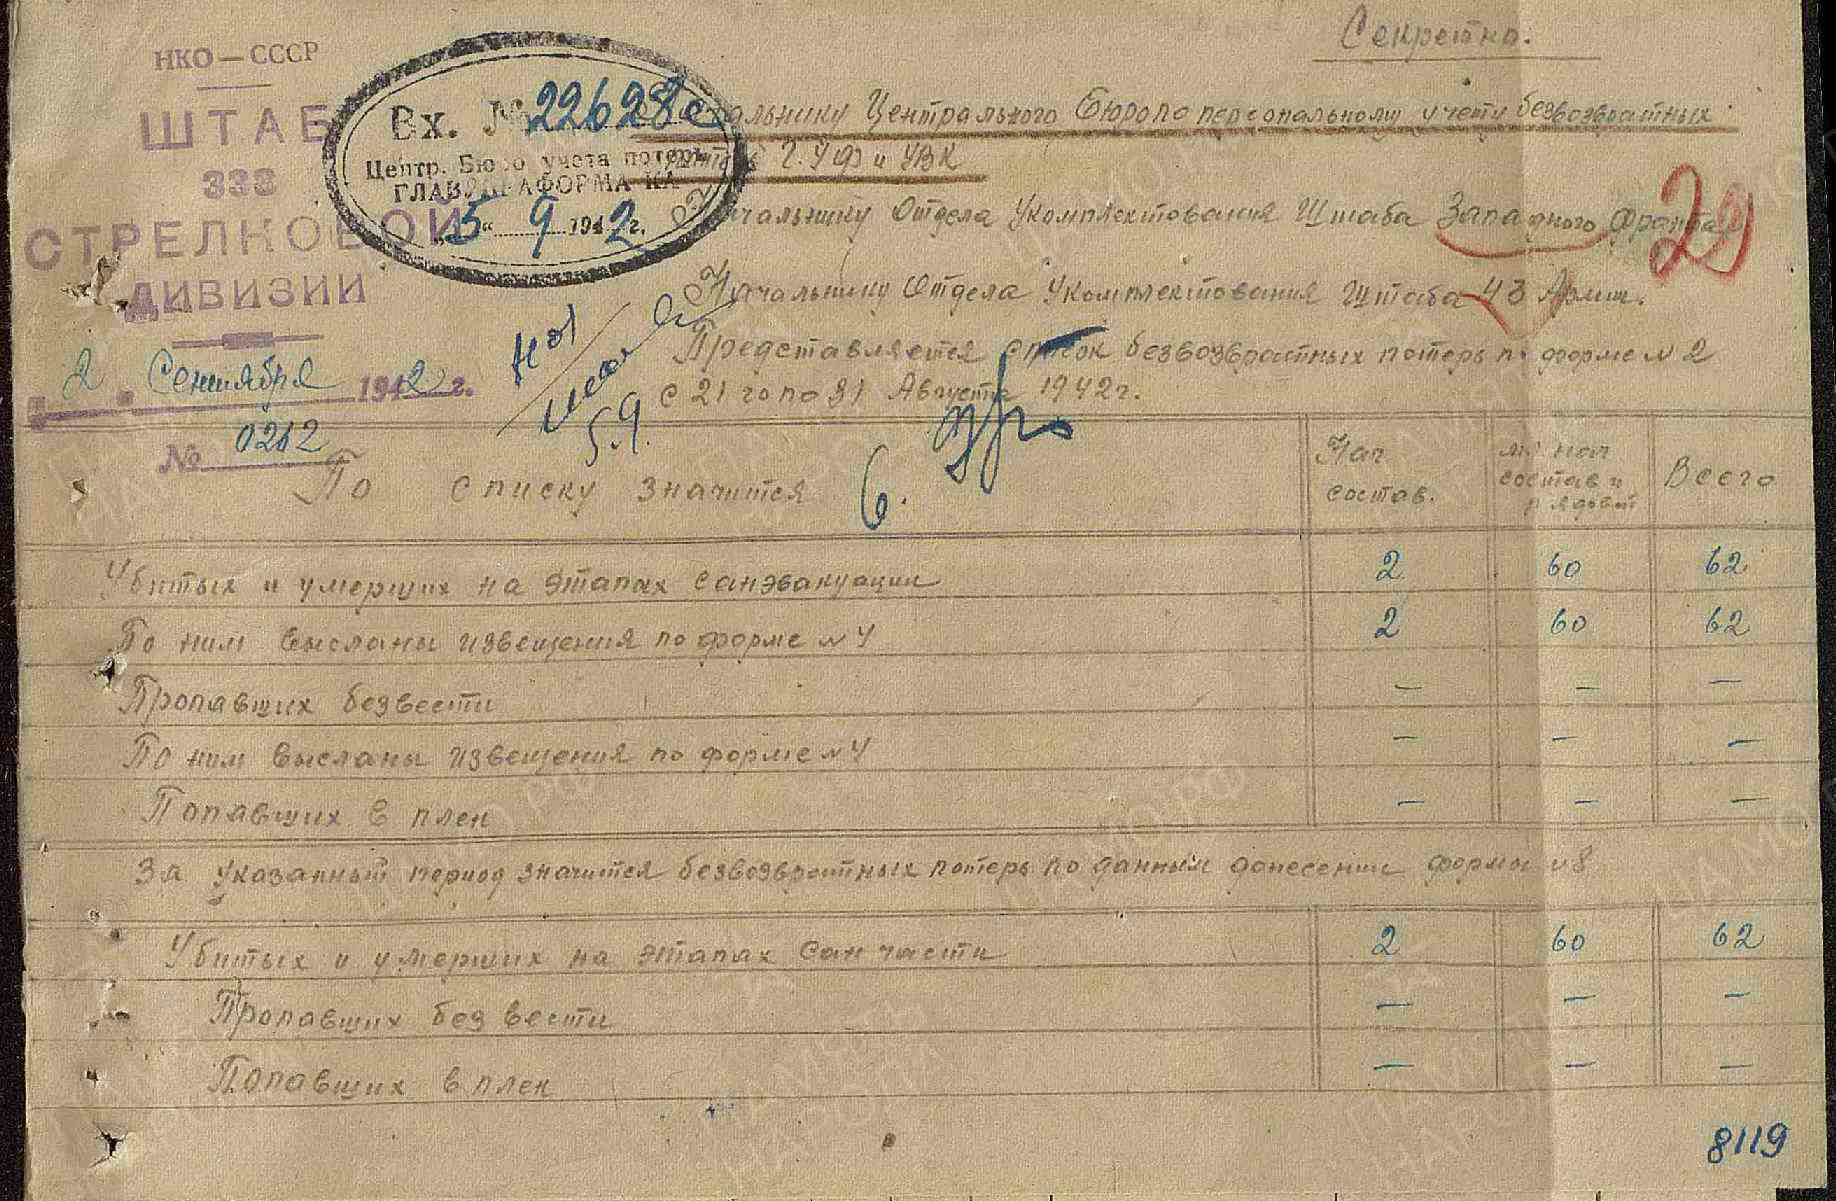 Секретно.
НКО — СССР
ШТАБ
333
СТРЕЛКОВОЙ
ДИВИЗИИ
2 Сентября 1942 г.
№ 0212
Вх. № 22628с
Центр. Бюро учета потерь
ГЛАВУПРАФОРМА КА
„5“ 9 1942 г.
Начальнику Центрального Бюро по персональному учету безвозвратных
потерь Г.У.Ф и УВК
Начальнику Отдела Укомплектования Штаба Западного Фронта
29
Начальнику Отдела Укомплектования Штаба 43 Армии.
Представляется список безвозвратных потерь по форме №2
с 21 го по 31 Августа 1942 г.
5.9.
По списку значится 6. Нач состав. мл нач состав и рядовой Всего
Убитых и умерших на этапах санэвакуации 2 60 62
По ним высланы извещения по форме №4 2 60 62
Пропавших безвести — — —
По ним высланы извещения по форме №4 — — —
Попавших в плен — — —
За указанный период значится безвозвратных потерь по данным донесении формы №8
Убитых и умерших на этапах Сан части 2 60 62
Пропавших без вести — — —
Попавших в плен — — —
8119